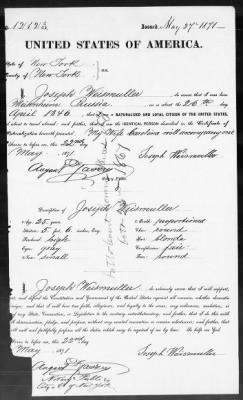 12123
Issued May 27th 1871
UNITED STATES OF AMERICA.
State of New York
County of New York
I, Joseph Weismuller, do swear that I was born
Russia, on or about the 26th day
April 1846
that I am a NATURALIZED and LOYAL CITIZEN OF THE UNITED STATES,
about to travel abroad; and further, that I am the IDENTICAL PERSON described in the Certificate of
Naturalization herewith presented. My Wife Carolina will accompany me
Sworn to before me, this 22nd day
May 1871
Joseph Weismuller
Notary Public.
Description of Joseph Weismuller
Age: 25 years
Mouth: proportioned
Stature: 5 feet 6 inches, Eng.
Chin: round
Forehead: high
Hair: blonde
Eyes: gray
Complexion: fair
Nose: small
Face: round
I, Joseph Weismuller, do solemnly swear that I will support,
protect, and defend the Constitution and Government of the United States against all enemies, whether domestic
or foreign; and that I will bear true faith, allegiance, and loyalty to the same, any ordinance, resolution, or
law of any State, Convention, or Legislature to the contrary notwithstanding; and further, that I do this
with a full determination, pledge, and purpose, without any mental reservation or evasion whatsoever; and further, that
I will well and faithfully perform all the duties which may be required of me by law. So help me God.
Sworn to before me, this 22nd day
May 1871
Joseph Weismuller
Notary Public
City of New York